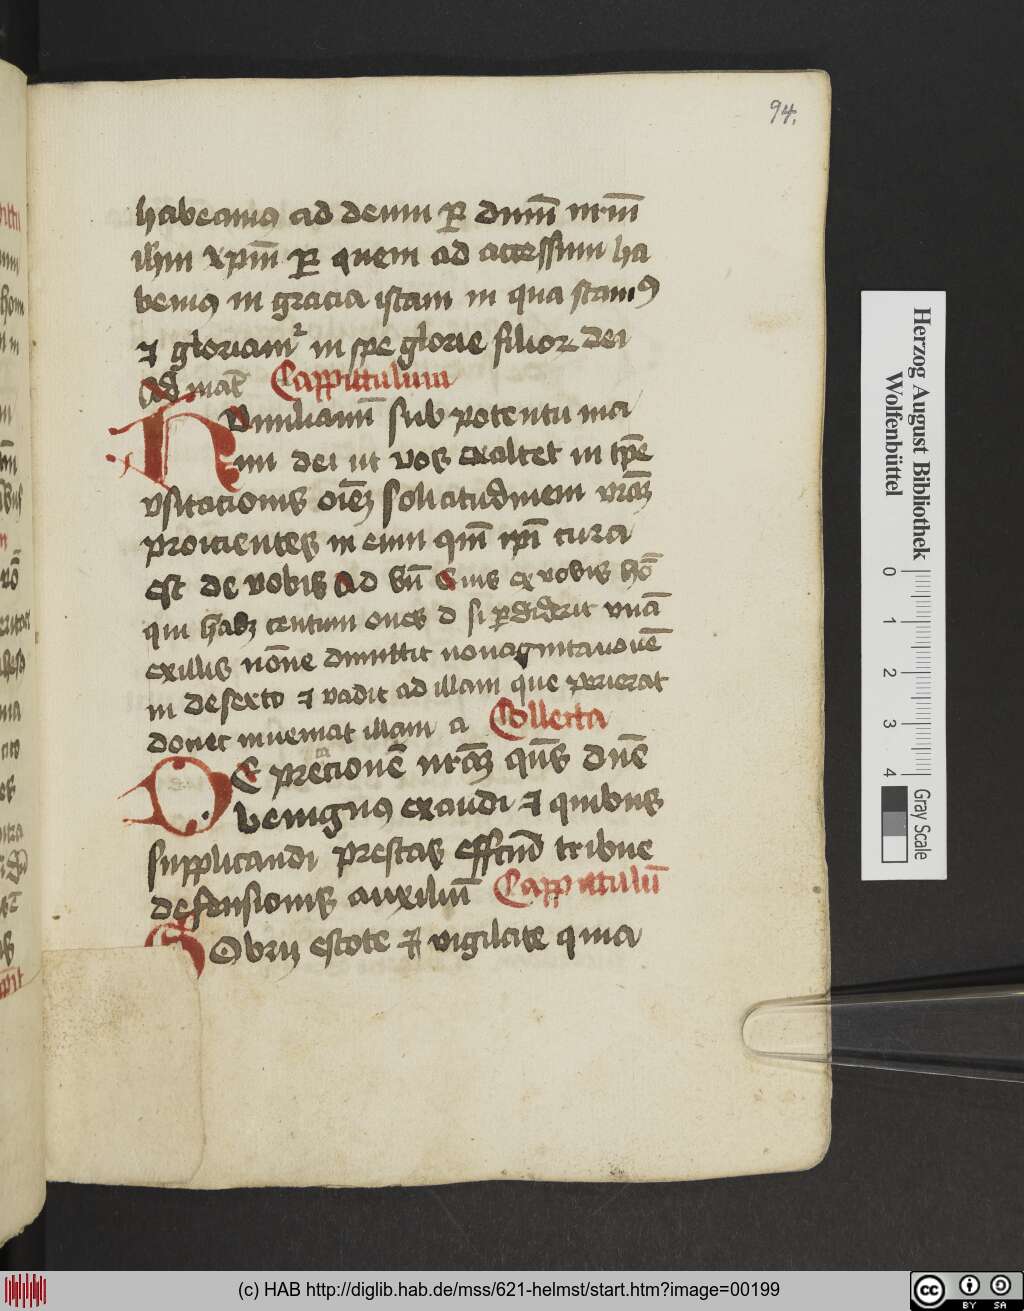 94.
habeamus ad deum ꝑ dnm̄ nrm̄
ihm xpm̄ ꝑ quem ad accessum ha
bemus in gracia istam in qua stamꝰ
⁊ gloriam² in spe glorie filioꝝ dei
Ad mat̄ Cappittulum
Humiliamī sub potenti ma
nu dei ut vos exaltet in tp̄e
visitacionis oīeꝫ solicitudinem vrāꝫ
proicientes in eum qm̄ ip̄i cura
est de vobis Ad bn̄ Quis ex vobis hō
qui habꝫ centum oues ⁊ si ꝑdiderit vnā
ex illis nōne dimittit nonagintanouē
in deserto ⁊ vadit ad illam que perierat
donec inueniat illam a Collecta
De precacionē nrāꝫ qūs dnē
benignus exaudi ⁊ quibus
supplicandi prestas effctūd tribue
defensionis auxiliū Cappittulū
Sobrij estote ⁊ vigilate quia
Herzog August Bibliothek
Wolfenbüttel
0 1 2 3 4
Gray Scale
(c) HAB http://diglib.hab.de/mss/621-helmst/start.htm?image=00199
cc BY SA